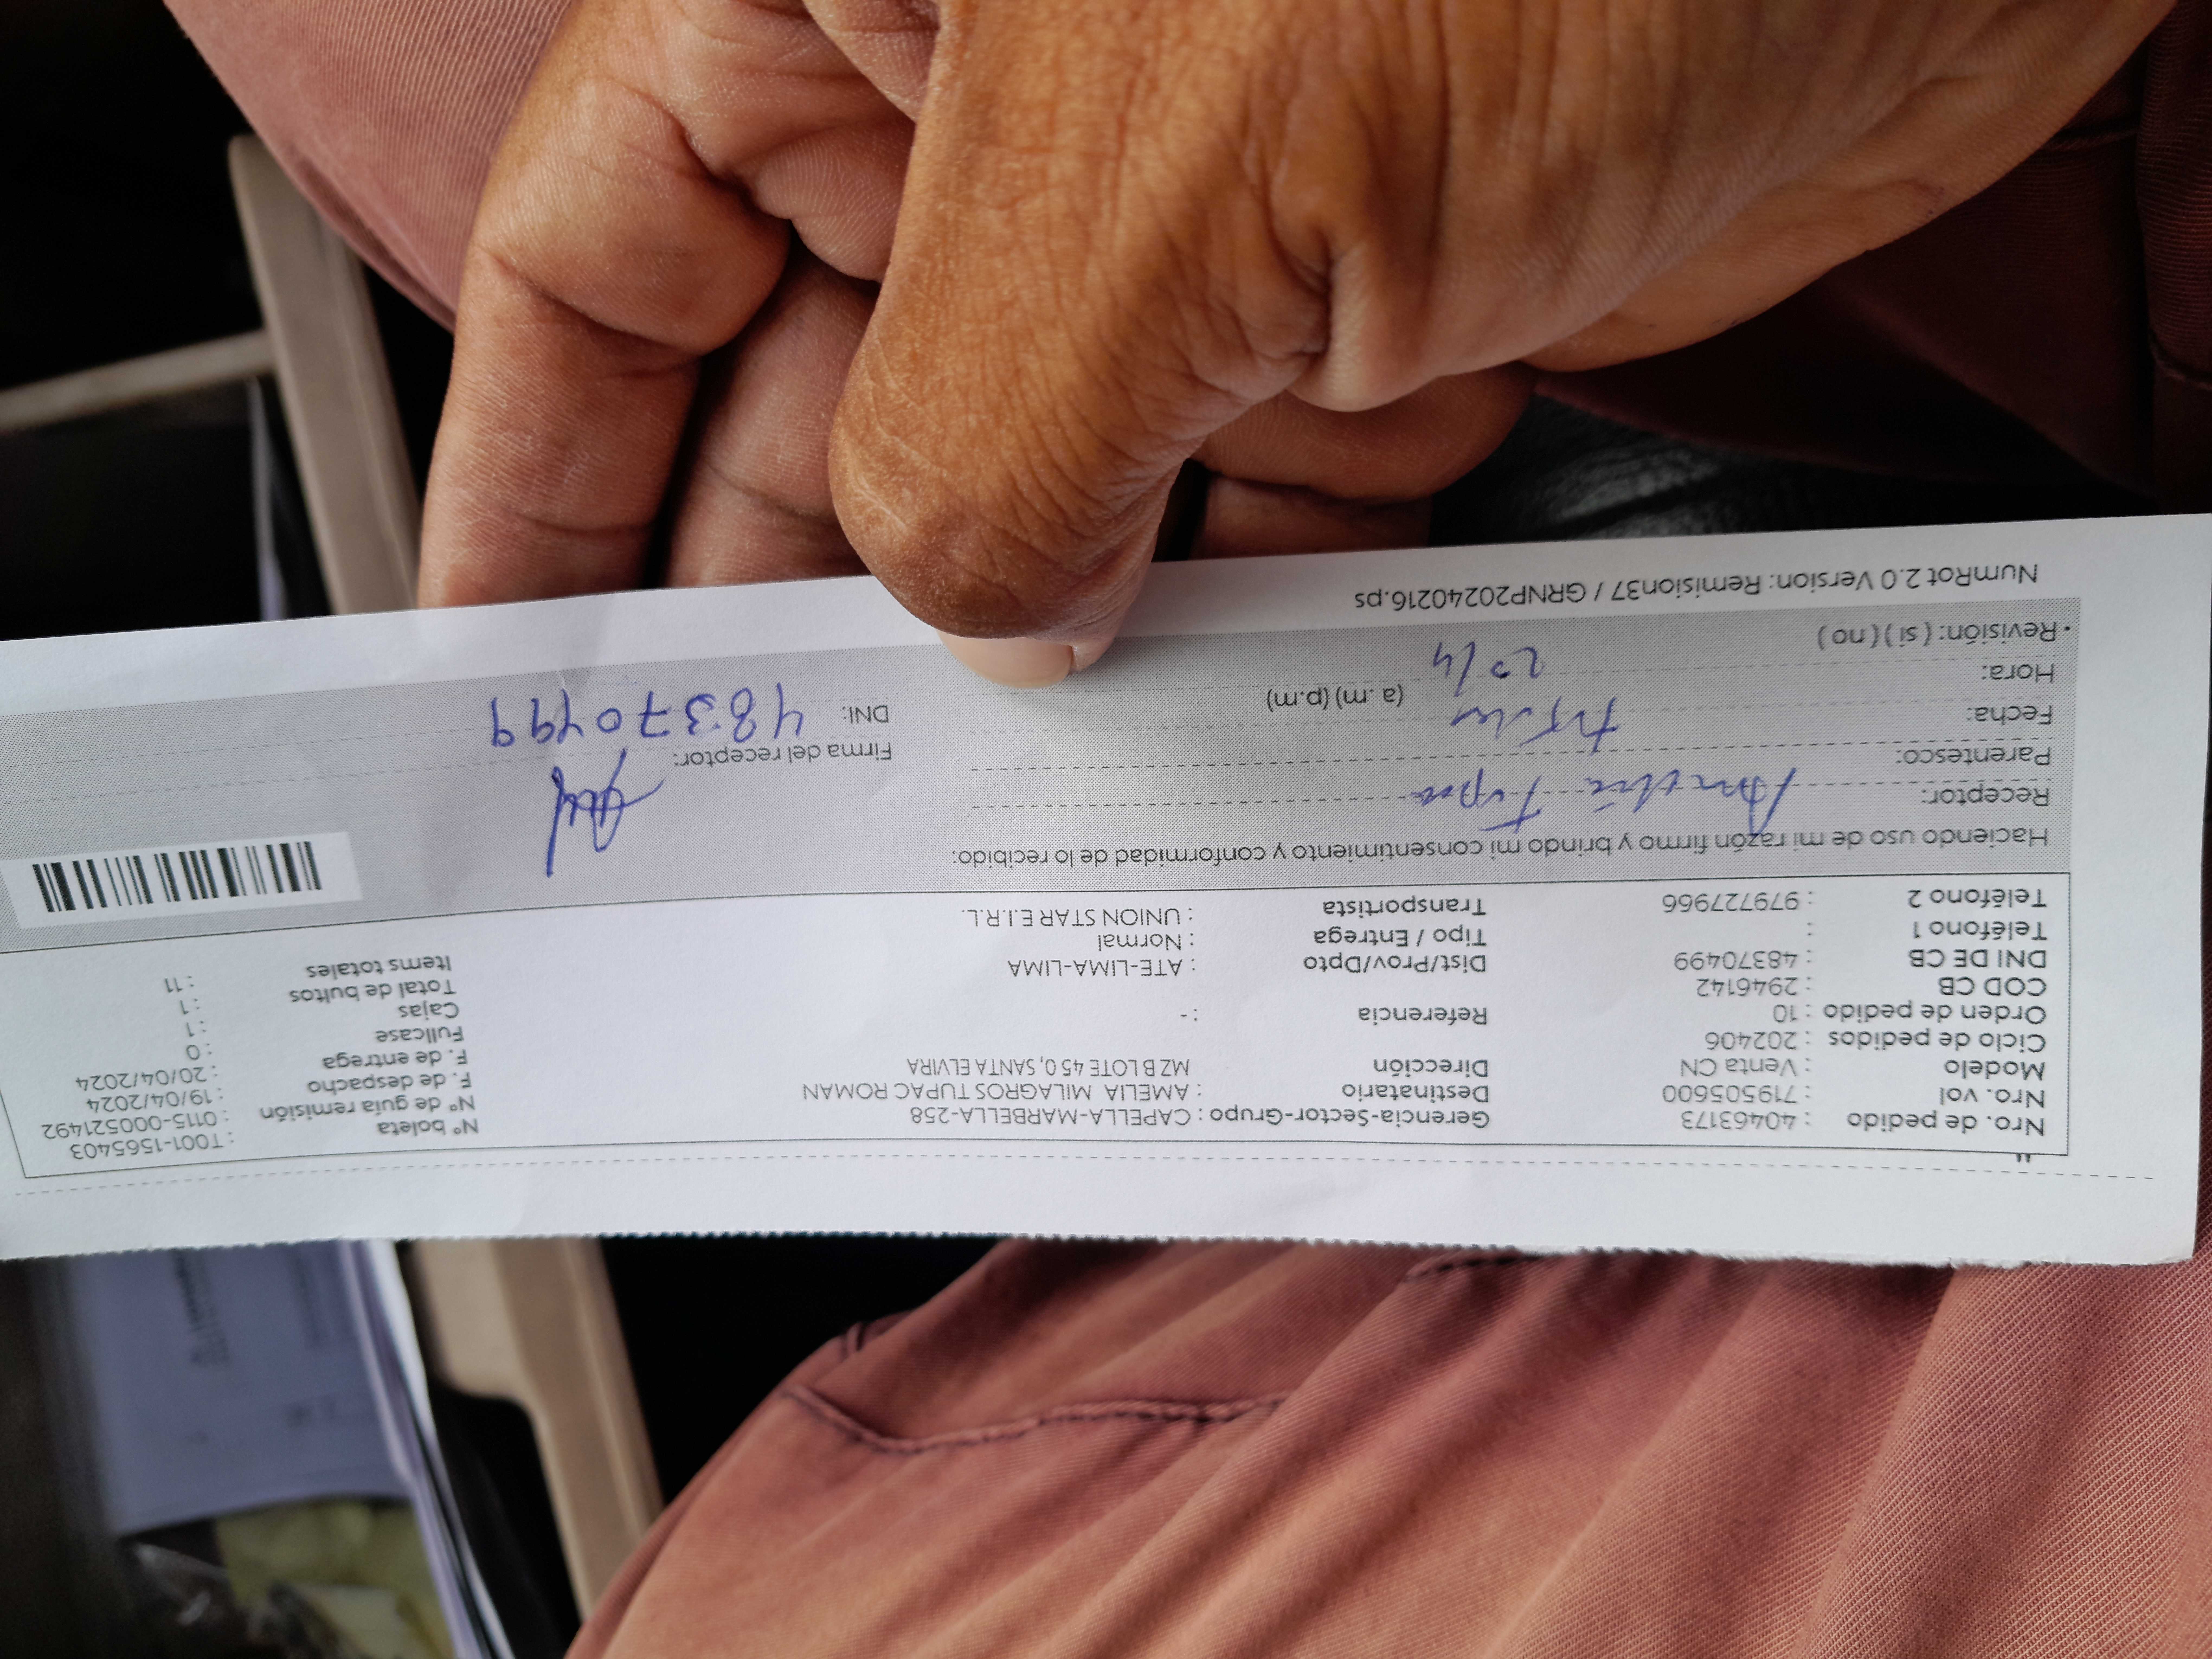 Nro. de pedido : 40463173 Gerencia-Sector-Grupo : CAPELLA-MARBELLA-258 N° boleta : T001-1565403
Nro. vol : 719505600 Destinatario : AMELIA MILAGROS TUPAC ROMAN N° de guía remisión : 0115-000521492
Modelo : Venta CN Dirección MZ B LOTE 45 0, SANTA ELVIRA F. de despacho : 19/04/2024
Ciclo de pedidos : 202406 F. de entrega : 20/04/2024
Orden de pedido : 10 Referencia : - Fullcase : 0
COD CB : 2946142 Cajas : 1
DNI DE CB : 48370499 Dist/Prov/Dpto : ATE-LIMA-LIMA Total de bultos : 1
Teléfono 1 : Tipo / Entrega : Normal Items totales : 11
Teléfono 2 : 979727966 Transportista : UNION STAR E.I.R.L.
Haciendo uso de mi razón firmo y brindo mi consentimiento y conformidad de lo recibido:
Receptor: Amelia Tupac
Parentesco: Firma del receptor:
Fecha: DNI: 48370499
Hora: 20/4 (a.m) (p.m)
• Revisión: ( si ) ( no )
NumRot 2.0 Version: Remision37 / GRNP20240216.ps